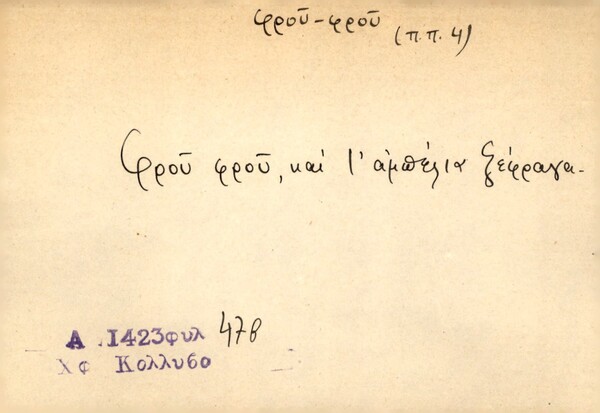 φροῦ-φροῦ (π.π. 4)
Φροῦ φροῦ, καί τ' ἀμπέλια ξέφραγα.
Α .1423φυλ 47β
Χφ Κολλυβο